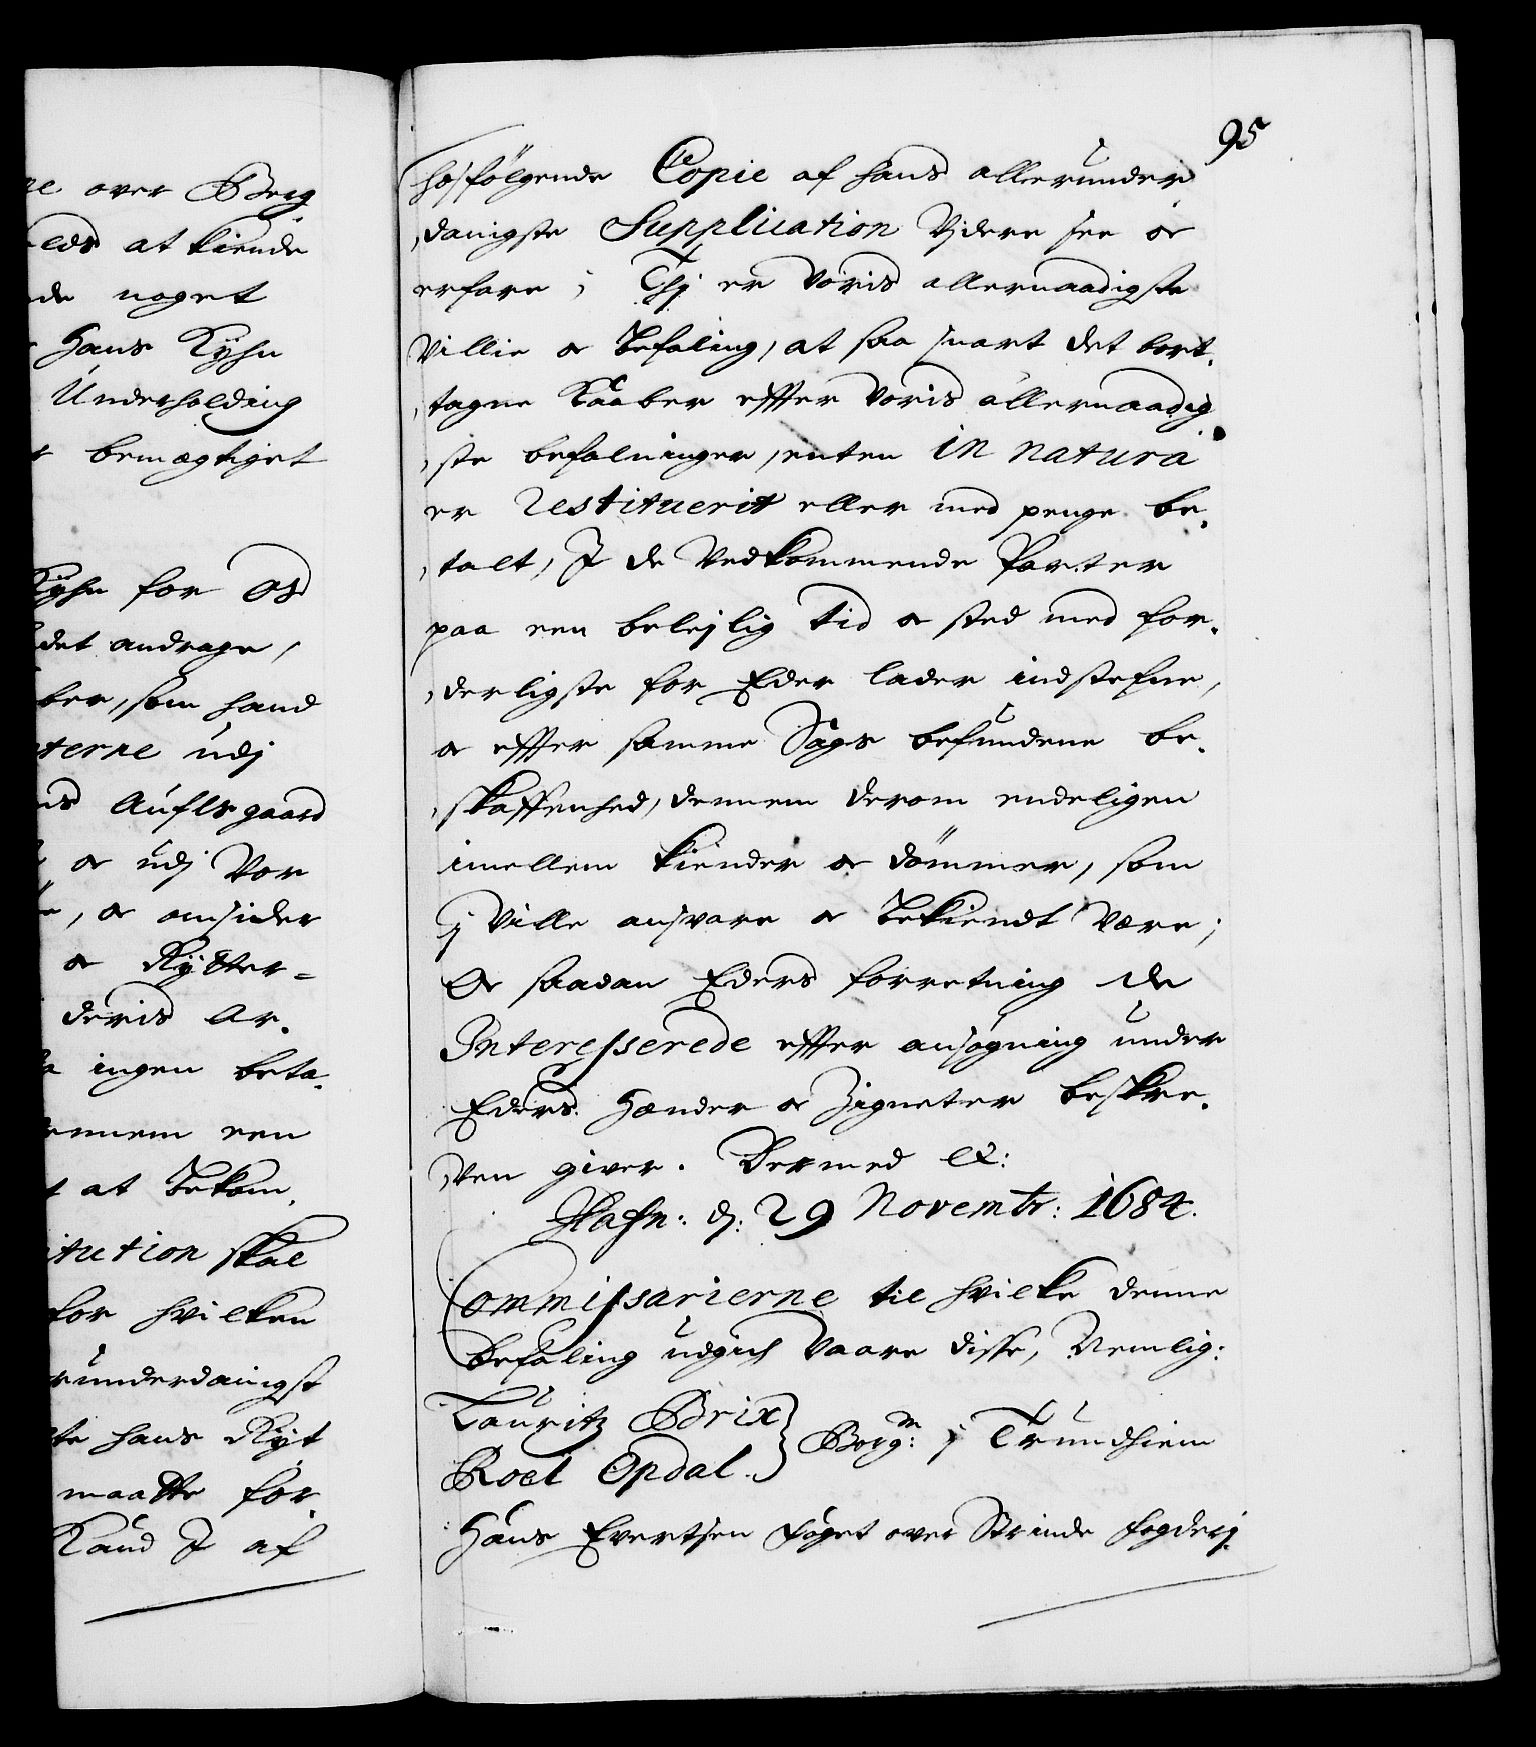 re over Berg
eds at kiende
de noget
Hans Kyhn
Underholding
bemegtiget
Kyhn for Os
det andrage,
ber, som hand
terne udj
ns Aufls gaard
og udj Vor
, og omsider
og Rytter-
deris Ar-
ingen beta-
ennem een
at bekom-
itution skal
for hvilken
runderdanigst
te hans Ryt
maatte for-
Kand I af
95
hosfølgende Copie af hans allerunder-
danigste Supplication Vjdere see og
erfare; Thj er Voris allernaadigste
Villie og Befaling, at saa snart det bort-
tagne Kaaber effter Voris allernaadig-
ste befalninger, enten in natura
er restituerit eller med penge be-
talt, I de Vedkommende Parter
paa een belejlig tid og sted med for-
derligste for Eder lader indstefne,
og effter samme Sags befundene be-
skaffenhed, dennem derom endeligen
imellem kiender og dømmer, som
j Ville ansvare og Bekiendt Være;
Og saadan Eders forretning de
Interesserede effter ansøgning under
Eders Hænder og Zigneter beskre-
ven giver. Dermed etc:
Hafn: d: 29 Novembr: 1684.
Commissarierne til hvilke denne
Befaling udgick Vaare disse, Nemlig:
Lauritz Brix
Roel Opdal.
} Borgm: j Trundhiem
Hans Evertsen foget over Strinde fogderj.